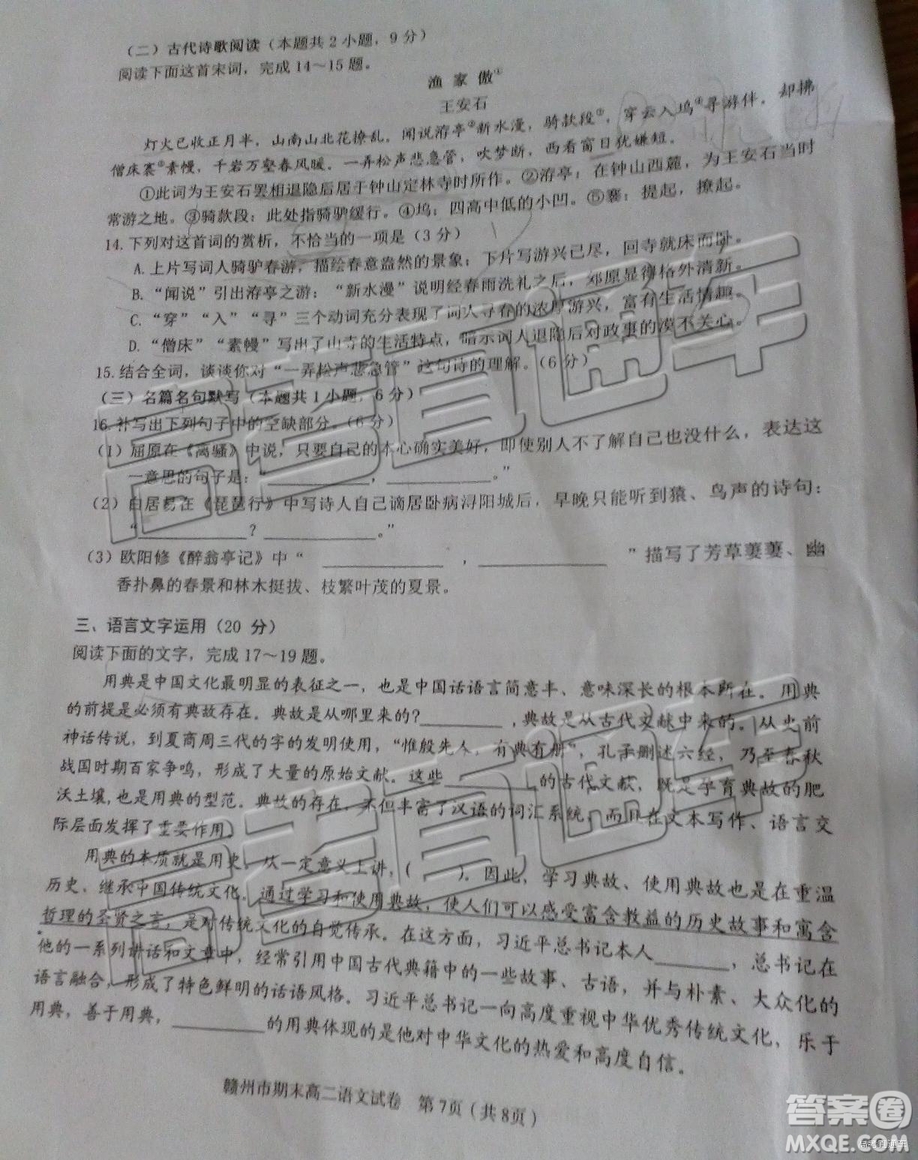 （二）古代诗歌阅读（本题共2小题，9分）
阅读下面这首宋词，完成14～15题。
渔 家 傲①
王安石
灯火已收正月半，山南山北花撩乱。闻说洊亭②新水漫，骑款段③，穿云入坞④寻游伴。却拂
僧床褰⑤素幔，千岩万壑春风暖。一弄松声悲急管，吹梦断，西看窗日犹嫌短。
①此词为王安石罢相退隐后居于钟山定林寺时所作。②洊亭：在钟山西麓，为王安石当时
常游之地。③骑款段：此处指骑驴缓行。④坞：四高中低的小凹。⑤褰：提起，撩起。
14.下列对这首词的赏析，不恰当的一项是（3分）
A.上片写词人骑驴春游，描绘春意盎然的景象；下片写游兴已尽，回寺就床而卧。
B.“闻说”引出洊亭之游；“新水漫”说明经春雨洗礼之后，郊原显得格外清新。
C.“穿”“入”“寻”三个动词充分表现了词人寻春的浓厚游兴，富有生活情趣。
D.“僧床”“素幔”写出了山寺的生活特点，暗示词人退隐后对政事的漠不关心。
15.结合全词，谈谈你对“一弄松声悲急管”这句诗的理解。（6分）
（三）名篇名句默写（本题共1小题，6分）
16.补写出下列句子中的空缺部分。（6分）
（1）屈原在《离骚》中说，只要自己的本心确实美好，即使别人不了解自己也没什么，表达这
一意思的句子是：“________，________。”
（2）白居易在《琵琶行》中写诗人自己谪居卧病浔阳城后，早晚只能听到猿、鸟声的诗句：
“________？________。”
（3）欧阳修《醉翁亭记》中“________，________”描写了芳草萋萋、幽
香扑鼻的春景和林木挺拔、枝繁叶茂的夏景。
三、语言文字运用（20 分）
阅读下面的文字，完成17～19题。
用典是中国文化最明显的表征之一，也是中国话语言简意丰、意味深长的根本所在。用典
的前提是必须有典故存在。典故是从哪里来的?________，典故是从古代文献中来的。从史前
神话传说，到夏商周三代的字的发明使用，“惟殷先人，有典有册”，孔子删述六经，乃至春秋
战国时期百家争鸣，形成了大量的原始文献。这些________的古代文献，既是孕育典故的肥
沃土壤，也是用典的型范。典故的存在，不但丰富了汉语的词汇系统，而且在文本写作、语言交
际层面发挥了重要作用。
用典的本质就是用史，从一定意义上讲，（　　）。因此，学习典故、使用典故也是在重温
历史，继承中国传统文化。通过学习和使用典故，使人们可以感受富含教益的历史故事和寓含
哲理的圣贤之言，是对传统文化的自觉传承。在这方面，习近平总书记本人________，总书记在
他的一系列讲话和文章中，经常引用中国古代典籍中的一些故事、古语，并与朴素、大众化的
语言融合，形成了特色鲜明的话语风格。习近平总书记一向高度重视中华优秀传统文化，乐于
用典，善于用典，________的用典体现的是他对中华文化的热爱和高度自信。
赣州市期末高二语文试卷　第7页（共8页）
答案圈
MXQE.COM